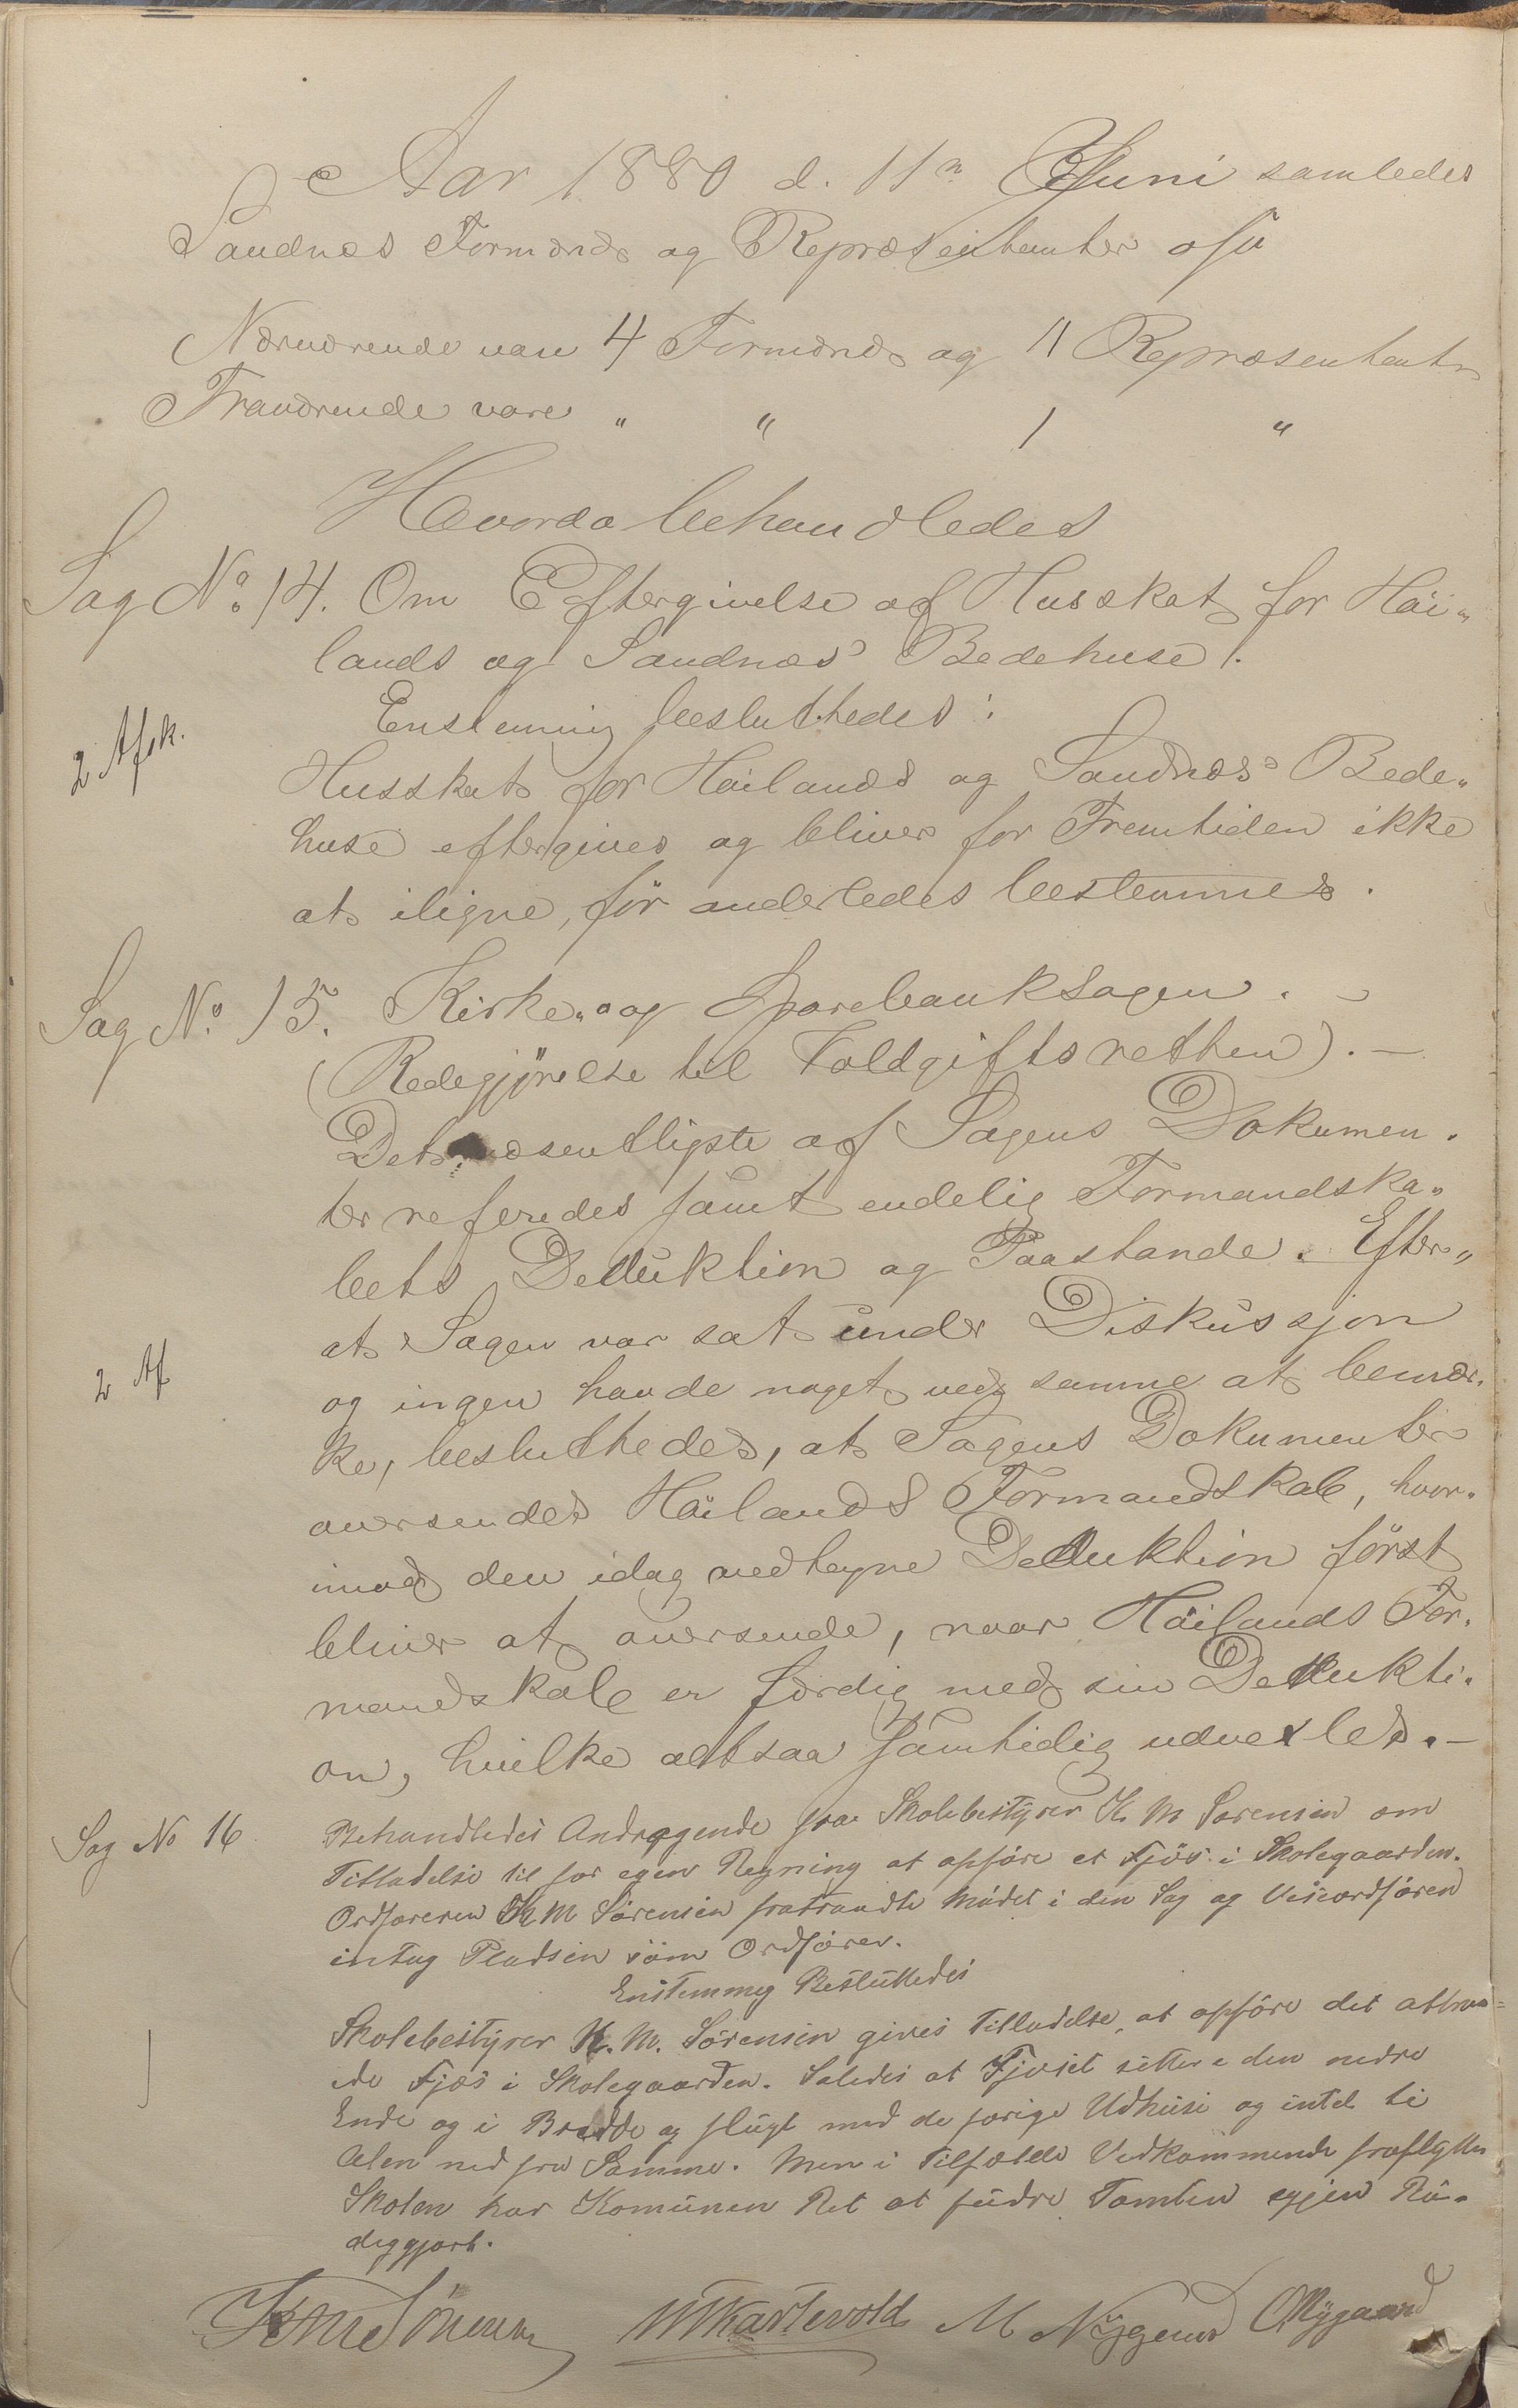 Aar 1880 d. 11n Juni samledes
Sandnæs Formænd og Repræsentanter
Nærværende vare 4 Formænd og 11 Repræsentant
Fraværende vare " " 1 "
Hvorda behandledes
Sag No. 14. Om Eftergivelse af Husskat for Höi„
lands og Sandnæs' Bedehuse.
Enstemmig besluttedes:
2 Afsk.
Husskat for Höilands og Sandnæs' Bede„
huse eftergives og bliver for Fremtiden ikke
at iligne, för anderledes bestemmes.
Sag No. 15. Kirke„ og Sparebanksagen. –
(Redegjörelse til Voldgiftsretten). –
Det væsentligste af Sagens Dokumen.
ter referedes samt endelig Formandska„
bets Deduktion og Paastande. Efter„
at Sagen var sat under Diskussjon
2 Af
og ingen havde noget ved samme at bemær.
ke, besluttedes, at Sagens Dokumenter
oversendes Höilands Formandskab, hvor.
imod den idag vedtagne Deduktion först
bliver at oversende, naar Höilands For.
mandskab er færdig med sin Dedukti.
on, hvilke altsaa samtidig udvexles. –
Sag No 16 Behandledes Andragende fra Skolebestyrer K. M Sørensen om
Tilladelse til for egen Regning at opføre et Fjøs i Skolegaarden.
Ordføreren K M Sørensen fratraadte Mødet i den Sag og Viseordføren
intog Pladsen som Ordfører.
Enstemmig Besluttedes
Skolebestyrer K. M. Sørensen gives Tilladelse, at opføre det attraa=
ede Fjøs i Skolegaarden. Saledes at Fjøset sættes e den nedre
Ende og i Bredde og flugt med de førige Udhuse og intil ti
Alen ned fra Samme. Men i Tilfælde Vedkommende fraflytter
Skolen har Komunen Ret at fudre Tomten igjen Rü„
diggjort.
KM Sörensen W Kartevold M Nygaard O Nygaard